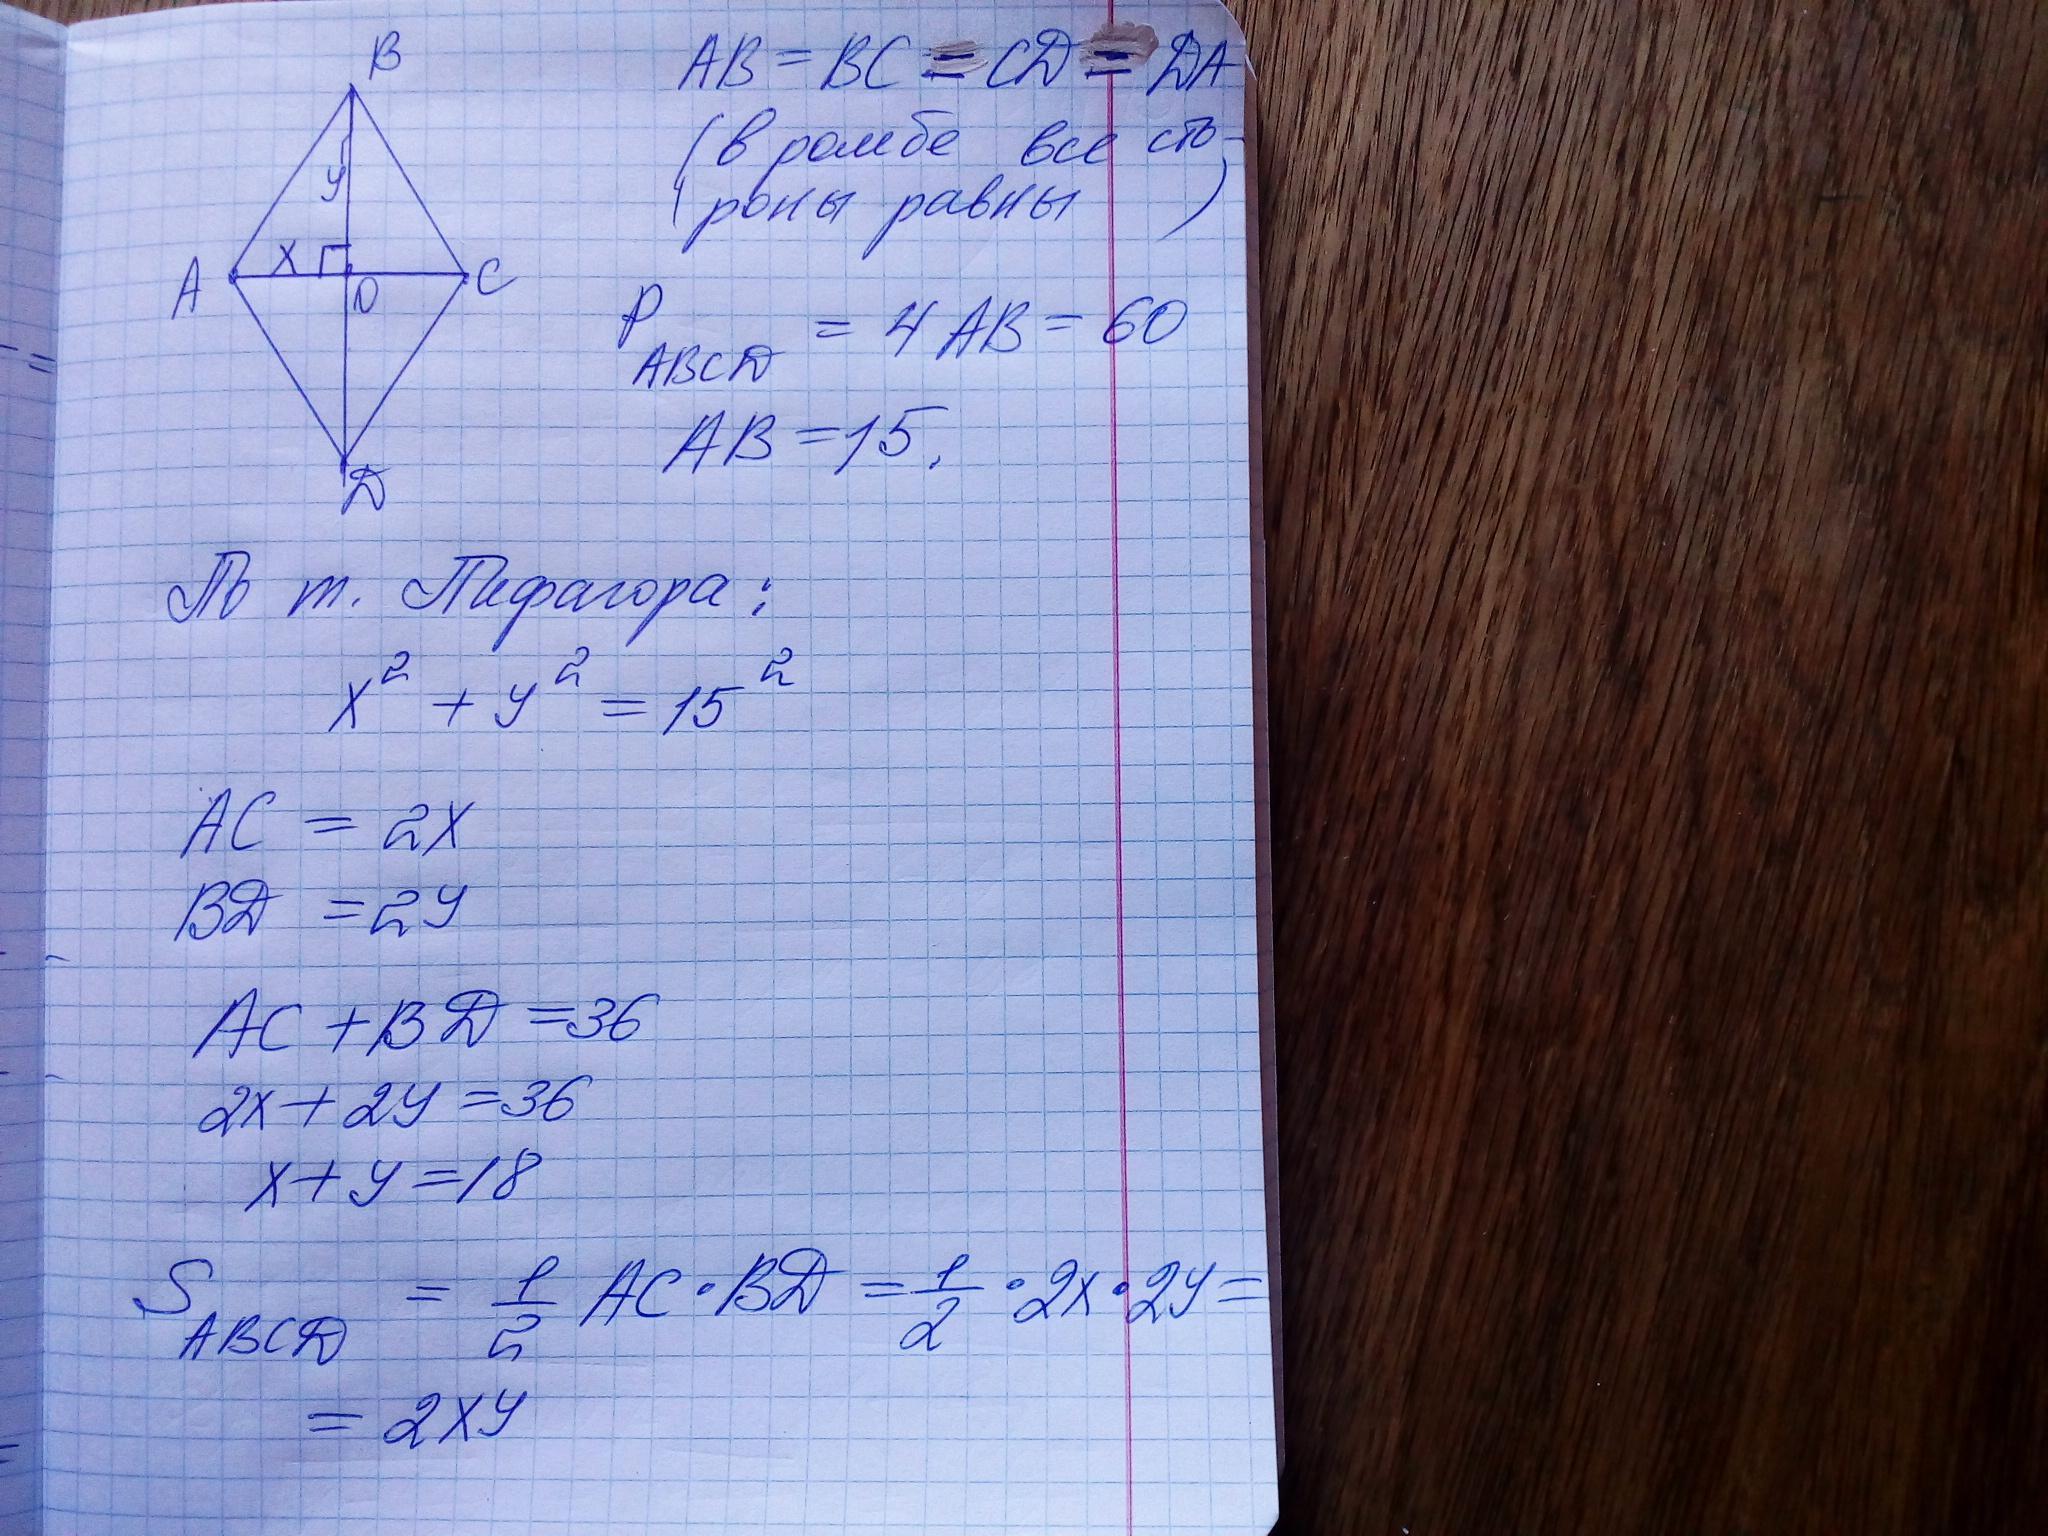 B
y
x
A
O
C
D
AB = BC = CD = DA
(в ромбе все сто-
роны равны)
P ABCD = 4 AB = 60
AB = 15.
По т. Пифагора:
x² + y² = 15²
AC = 2x
BD = 2y
AC + BD = 36
2x + 2y = 36
x + y = 18
S ABCD = 1/2 AC · BD = 1/2 · 2x · 2y =
= 2xy